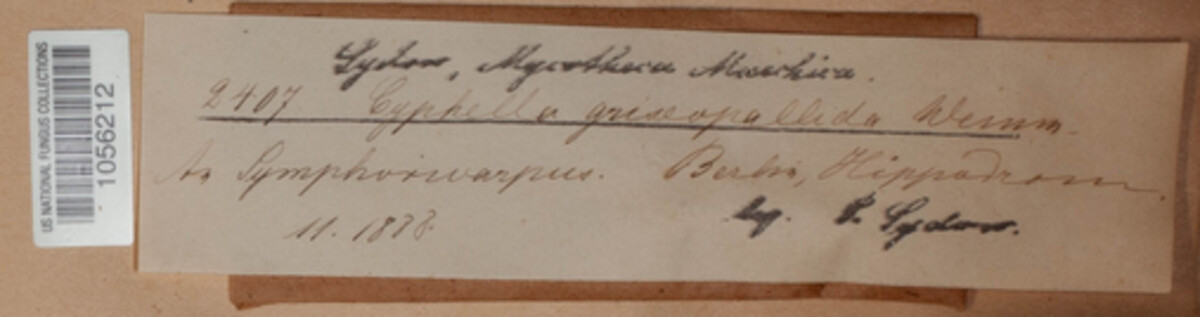 US NATIONAL FUNGUS COLLECTIONS
1056212
Sydow, Mycotheca Marchica.
2407 Cyphella griseopallida Weinm.
An Symphoricarpus. Berlin, Hippodrom.
11. 1888. leg. P. Sydow.